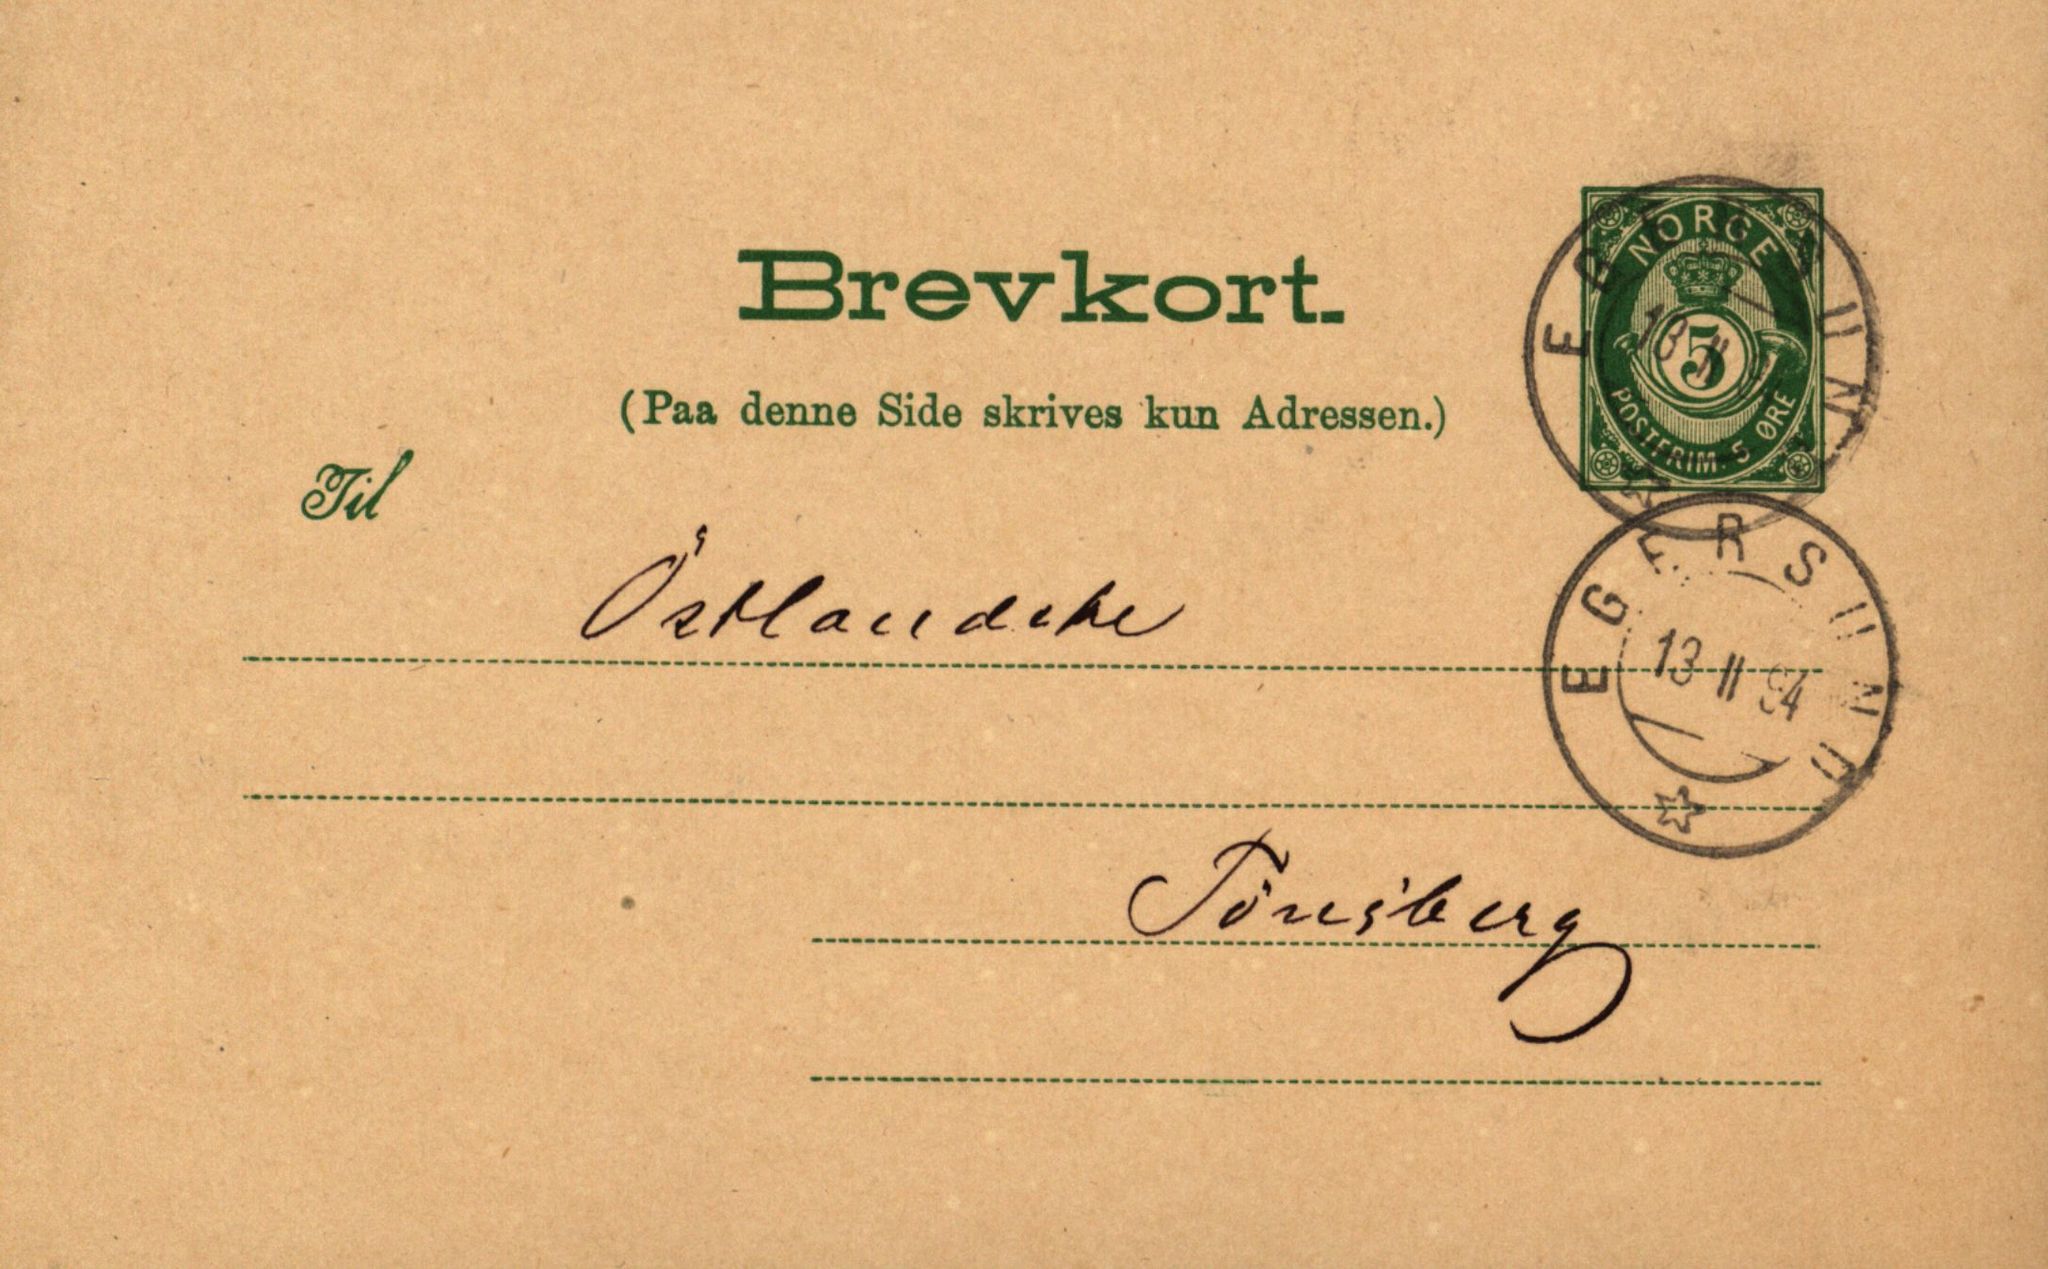 NORGE
5
POSTFRIM. 5 ØRE
Brevkort.
(Paa denne Side skrives kun Adressen.)
Til
Östlandske
EGERSUND
13 II 94
Tönsberg